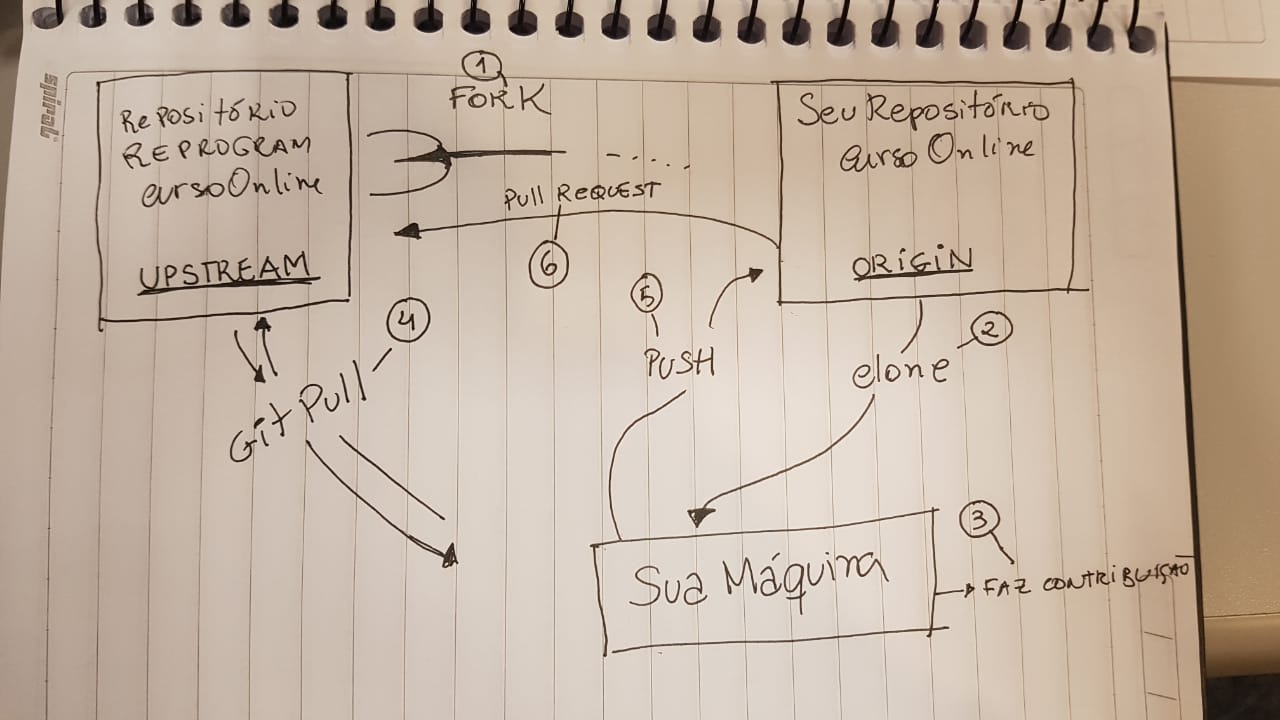 spiral
1
FORK
RePositóRio
REPROGRAM
cursoOnline
UPSTREAM
Seu Repositório
curso Online
ORIGIN
Pull REQUEST
6
5
PUSH
4
Git Pull
2
clone
Sua Máquina
3
FAZ CONTRIBUIÇÃO